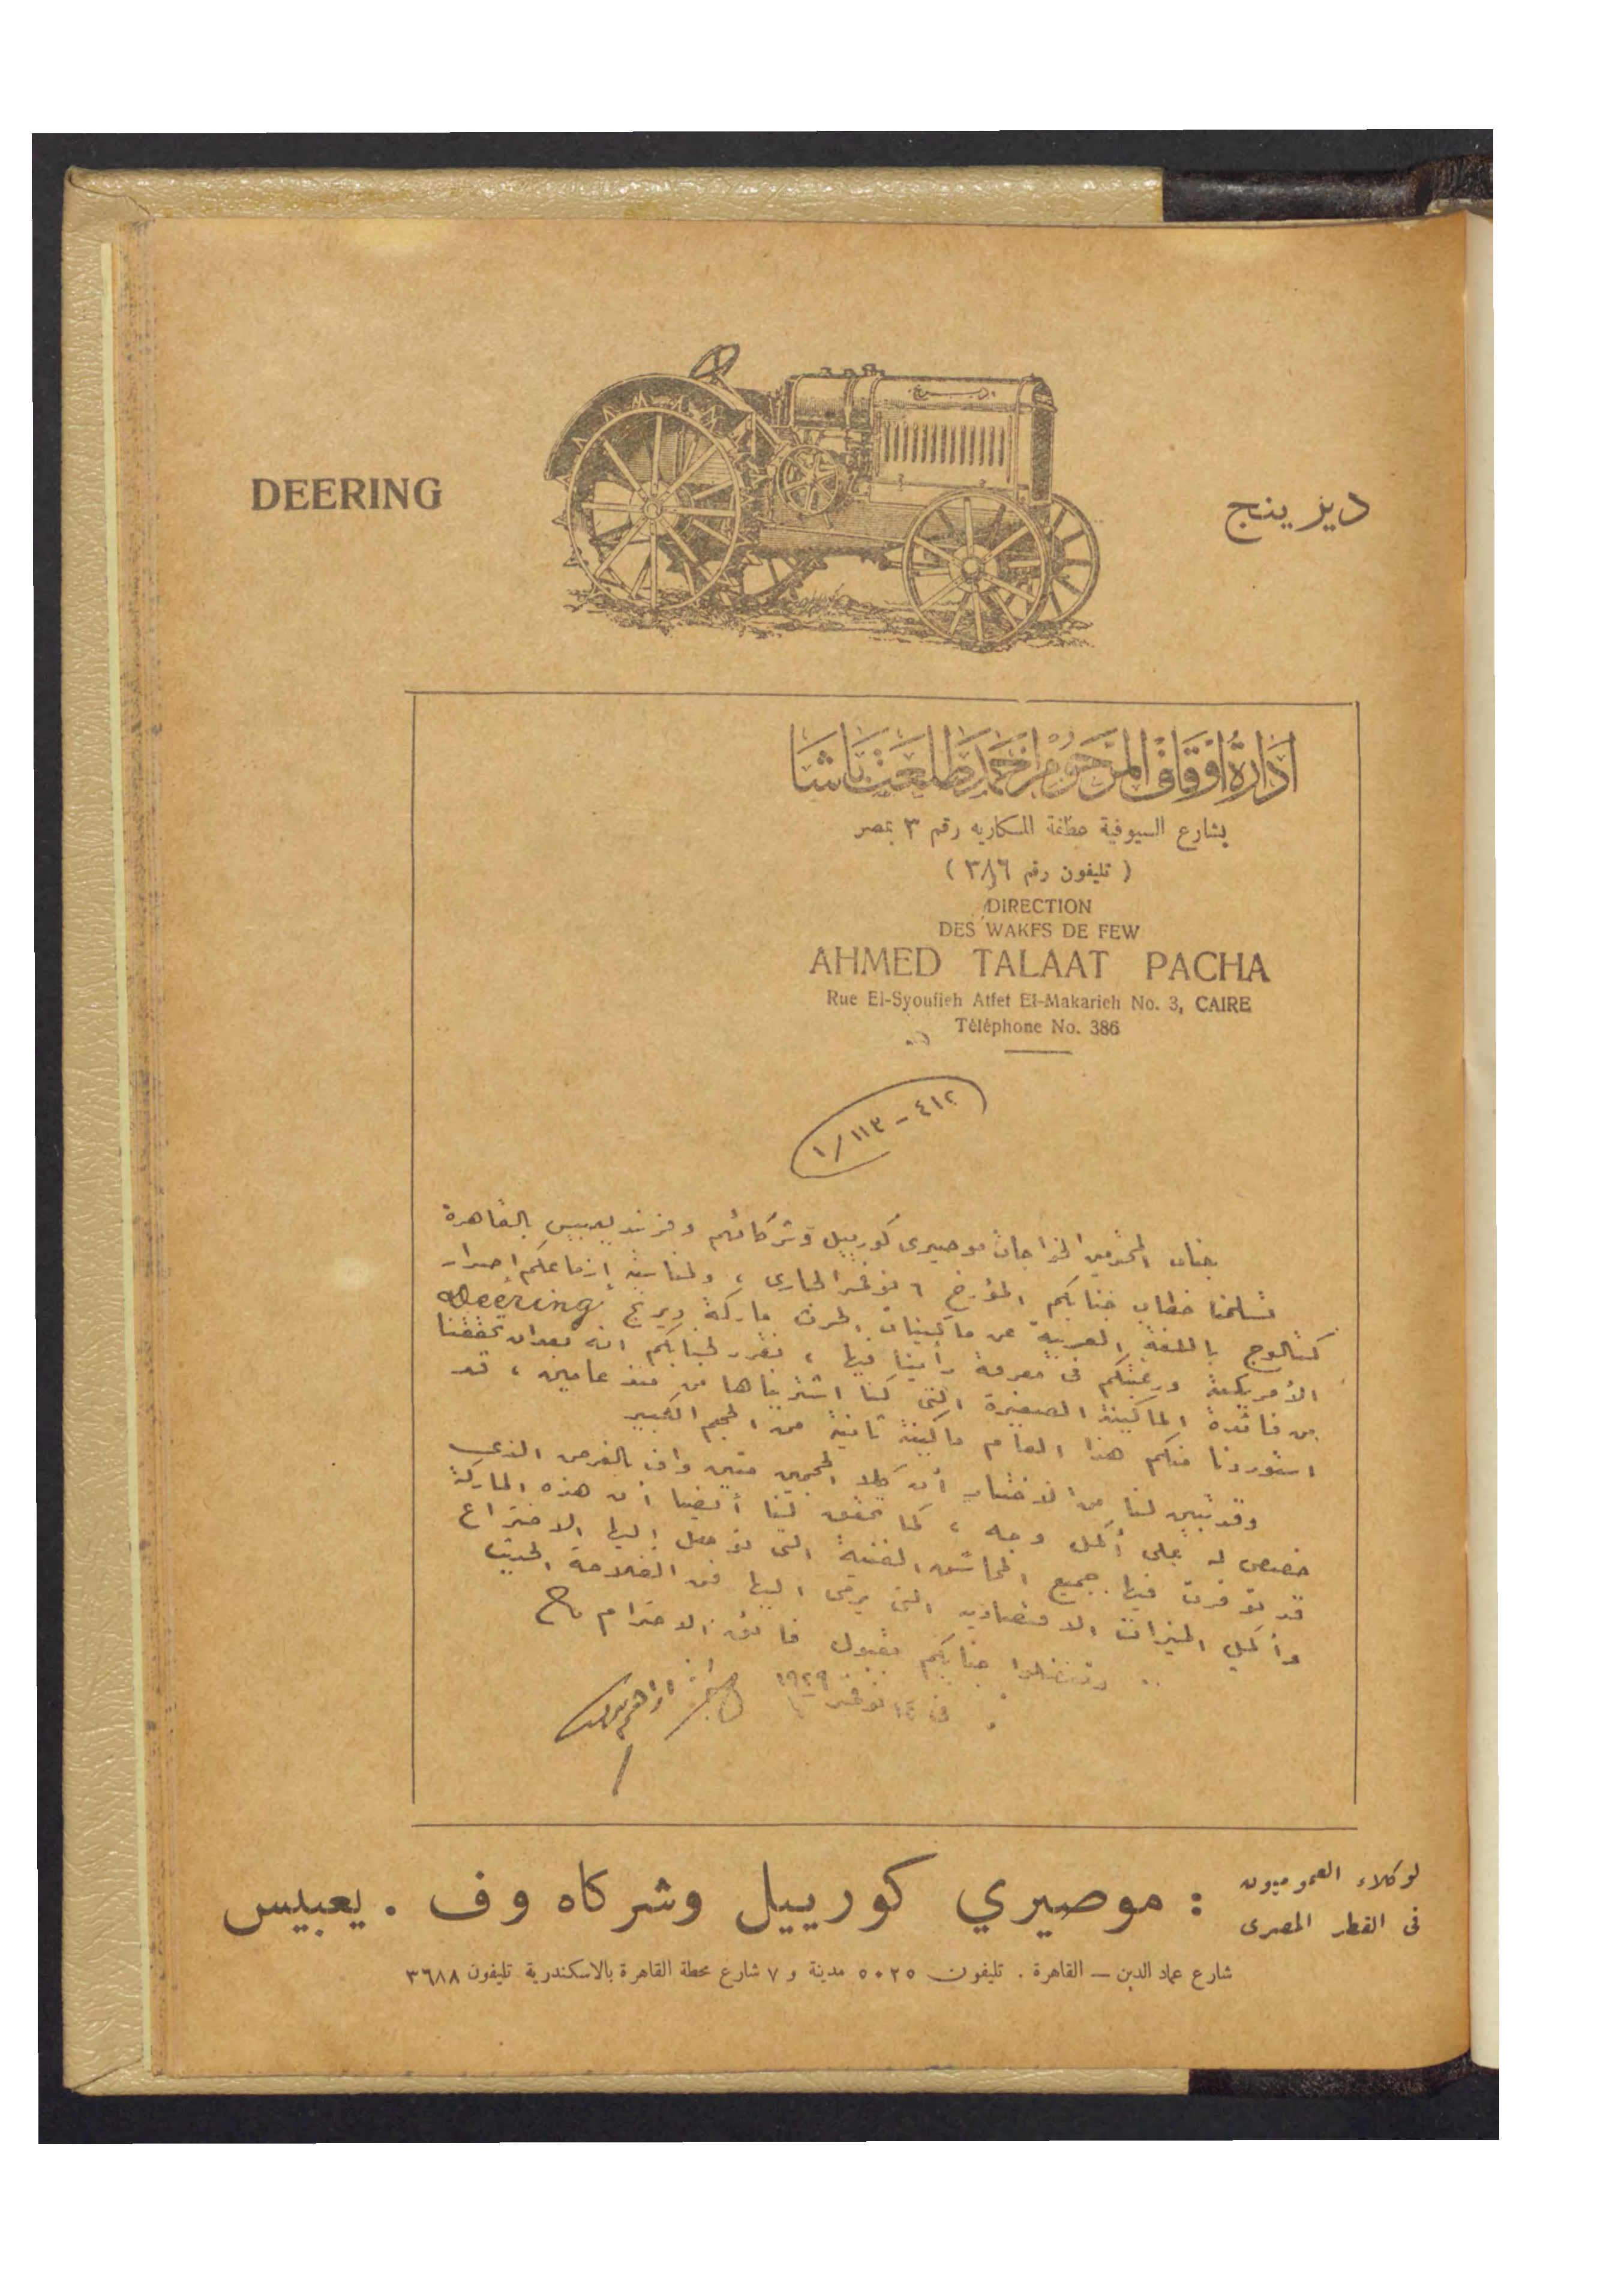 DEERING
ديرينج
ادارة اوقاف المرحوم احمد طلعت باشا
بشارع السيوفية عطفة المكاريه رقم ٣ بمصر
( تليفون رقم ٣٨٦ )
DIRECTION
DES WAKFS DE FEW
AHMED TALAAT PACHA
Rue El-Syoufieh Atfet El-Makarieh No. 3, CAIRE
Téléphone No. 386
٤١٢ – ١١٣ / ١
جناب المحترمين الخواجات موصيرى كورييل وشركائهم وفرند يعبيس بالقاهرة
تسلمنا خطاب جنابكم المؤرخ ٦ نوفمبر الجارى ، ولمناسبة إزماعكم إصدار
كتالوج باللغة العربية عن ماكينات الحرث ماركة ديرنج Deering
الأمريكية ورغبتكم فى معرفة رأينا فيها ، نقرر لجنابكم انه بعد ان تحققنا
من فائدة الماكينة الصغيرة التى كنا اشتريناها من منذ عامين ، قد
استوردنا منكم هذا العام ماكينة ثانية من الحجم الكبير
وقد تبين لنا من الاختبار أن كلا الحجمين متين واف بالغرض الذى
خصص له على أكمل وجه ، كما تحقق لنا أيضا أن هذه الماركة
قد توفرت فيها جميع المحاسن الفنية التى توصل إليها الاختراع
وأكمل الميزات الاقتصادية التى يرمى اليها فن الفلاحة الحديث
وتفضلوا جنابكم بقبول فائق الاحترام
فى ١٤ نوفمبر ١٩٢٩
لوكلاء العموميون
فى القطر المصرى
: موصيري كورييل وشركاه وف . يعبيس
شارع عماد الدين — القاهرة . تليفون ٥٠٢٥ مدينة و ٧ شارع محطة القاهرة بالاسكندرية تليفون ٣٦٨٨